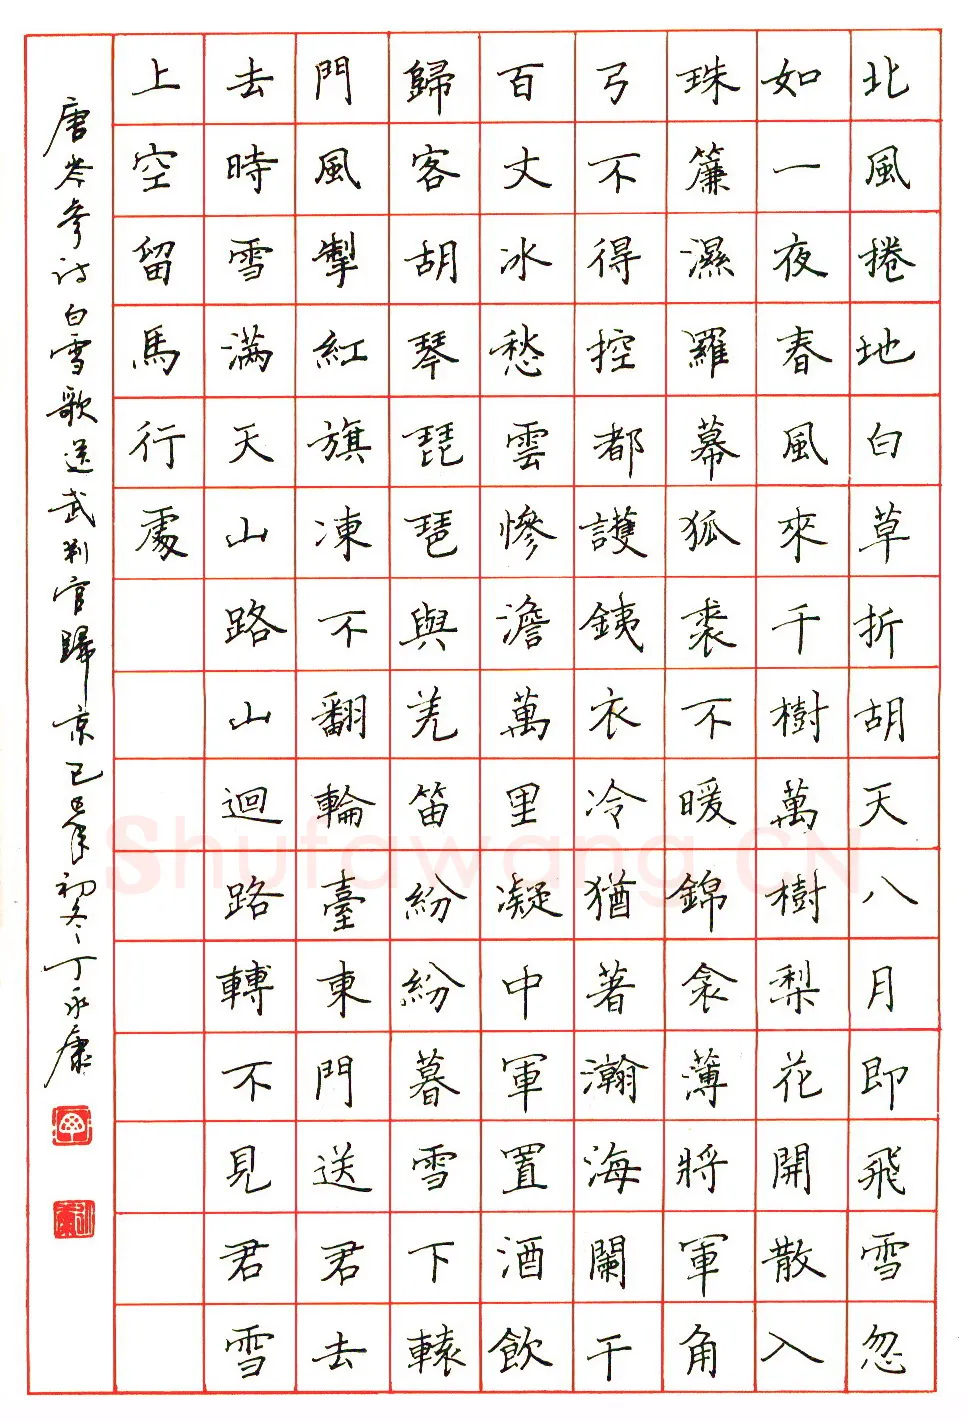 北風捲地白草折胡天八月即飛雪忽
如一夜春風來千樹萬樹梨花開散入
珠簾濕羅幕狐裘不暖錦衾薄將軍角
弓不得控都護鐵衣冷猶著瀚海闌干
百丈冰愁雲慘澹萬里凝中軍置酒飲
歸客胡琴琵琶與羌笛紛紛暮雪下轅
門風掣紅旗凍不翻輪臺東門送君去
去時雪滿天山路山迴路轉不見君雪
上空留馬行處
唐岑參詩白雪歌送武判官歸京己巳年初冬丁永康
Shufawang.CN